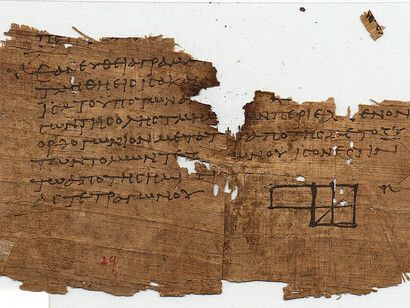 ΕΑΝ ΕΥΘΕΙΑ ΓΡΑΜ
ΤΜΗΘΗ ΕΙΣ ΙΣΑ ΚΑΙ
ΙΣΑ ΤΟ ΥΠΟ ΤΩΝ ΑΝ
ΤΩΝ ΤΗΣ ΟΛΗΣ ΤΜ ΠΕΡΙΕΧ ΕΝΟΝ
ΟΡΘΟΓΩΝΙΟΝ ΜΕΤΑ ΤΟΥ ΤΗΣ ΜΕΤΟΞΥ
ΤΩΝ ΤΟΜΩΝ ΤΕ ΩΝΟΥ ΙΣΟΝ ΕΣΤΙΝ
ΤΩ ΑΠΟ ΤΗΣ ΗΜΙ
ΑΣ ΤΕΤΡΑΓΩΝΟΥ
29